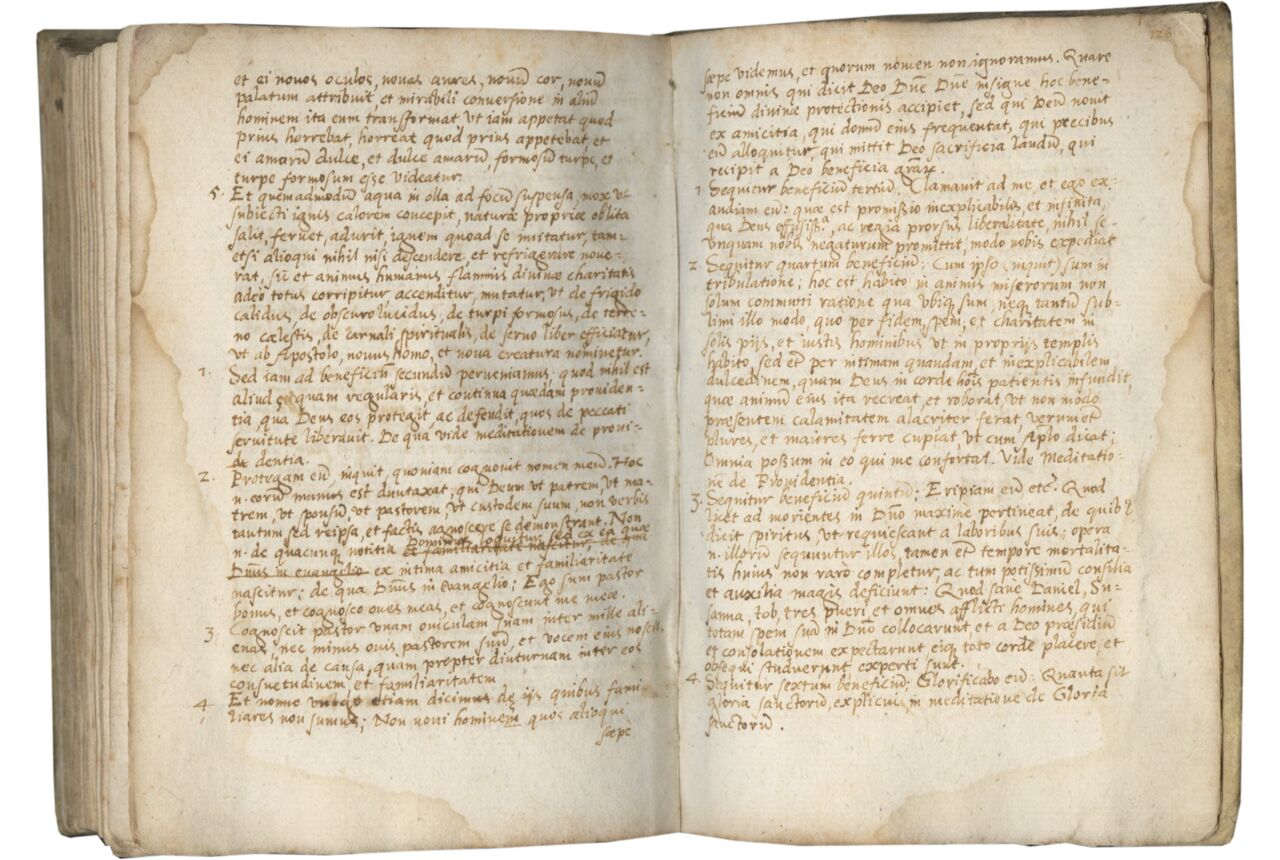 et ei novos oculos, novas aures, novū cor, novū
palatum attribuit, et mirabili conversione in aliū
hominem ita eum transformat ut iam appetat quod
prius horrebat, horreat quod prius appetebat et
ei amarū dulce, et dulce amarū, formosū turpe, et
turpe formosum esse videatur.
5. Et quemadmodū aqua in olla ad focū suspensa, mox ut
subiecti ignis calorem concepit, naturæ propriæ oblita
salit, fervet, adurit, ignem quoad se imitatur, tam=
etsi alioqui nihil nisi descendere, et refrigerare nove=
rat, sic et animus humanus flammis divinæ charitatis
adeo totus corripitur accenditur, mutatur, ut de frigido
calidus, de obscuro lucidus, de turpi formosus, de terre=
no cælestis, de carnali spiritualis, de servo liber efficiatur,
ut ab Apostolo, novus homo, et nova creatura nominetur.
1. Sed iam ad beneficiū secundū perveniamus; quod nihil est
aliud quam regularis, et continua quædam providen=
tia, qua Deus eos protegit, ac defendit, quos de peccati
servitute liberavit. De qua vide meditationem de provi=
dentia.
2. Protegam eū, inquit, quoniam cognovit nomen meū. Hoc
n. eorū munus est duntaxat, qui Deum ut patrem, ut ma=
trem, ut sponsū, ut pastorem, ut custodem suum, non verbis
tantum sed reipsa, et factis agnoscere se demonstrant. Non
n. de quacunq notitia Dominus loquitur, sed ex ea quæ
et familiaritate nascitur, de qua
Dn̄us in evangelio ex intima amicitia et familiaritate
nascitur; de qua Dn̄us in Evangelio; Ego sum pastor
bonus, et cognosco oves meas, et cognoscunt me meæ.
3. Cognoscit pastor unam oviculam suam inter mille ali=
enas, nec minus ovis pastorem suū, et vocem eius noscit,
nec alia de causa, quam propter diuturnam inter eos
consuetudinem et familiaritatem
4. Et nonne etiam dicimus de ijs quibus fami=
liares non sumus; Non novi hominem quos alioqui
sæpè
126
sæpe videmus, et quorum nomen non ignoramus. Quare
non omnis qui dicit Deo Dn̄e Dn̄e insigne hoc bene=
ficiū divinæ protectionis accipiet, sed qui Deū novit
ex amicitia, qui domū eius frequentat, qui precibus
eū alloquitur, qui mittit Deo sacrificia laudū, qui
recipit a Deo beneficia
1. Sequitur beneficiū tertiū, Clamavit ad me, et ego ex=
audiam eū: quæ est promissio inexplicabilis et infinita,
qua Deus effusiss.ª, ac regia prorsus liberalitate, nihil se
unquam nobis negaturum promittit, modo nobis expediat
2. Sequitur quartum beneficiū: Cum ipso (inquit) sum in
tribulatione; hoc est habito in animis miserorum non
solum communi ratione qua ubiq sum neq tantū sub=
limi illo modo, quo per fidem, spem, et charitatem in
solis pijs, et iustis hominibus ut in proprijs templis
habito, sed et̄ per intimam quandam, et inexplicabilem
dulcedinem, quam Deus in corde hoīs patientis infundit,
quæ animū eius ita recreat, et roborat, ut non modo
præsentem calamitatem alacriter ferat, verum et̄
plures, et maiores ferre cupiat ut cum Aplō dicat;
Omnia possum in eo qui me confortat. Vide Meditatio=
nē de Providentia.
3. Sequitur beneficiū quintū; Eripiam eū etc. Quod
licet ad morientes in Dn̄o maxime pertineat, de quib9
dicit spiritus ut requiescant a laboribus suis; opera
n. illorū sequuntur illos, tamen et̄ tempore mortalita=
tis huius non rarò completur, ac tum potissimū consilia
et auxilia magis deficiunt: Quod sane Daniel, Su=
sanna, tob, tres pueri et omnes afflicti homines, qui
totam spem suā in Dn̄o collocarunt, et a Deo præsidiū
et consolationem expectarunt, eiq toto corde placere, et
obsequi studuerunt experti sunt.
4. Sequitur sextum beneficiū; Glorificabo eū: Quanta sit
gloria sanctorū, explicui in meditatione de Gloria
sanctorū.